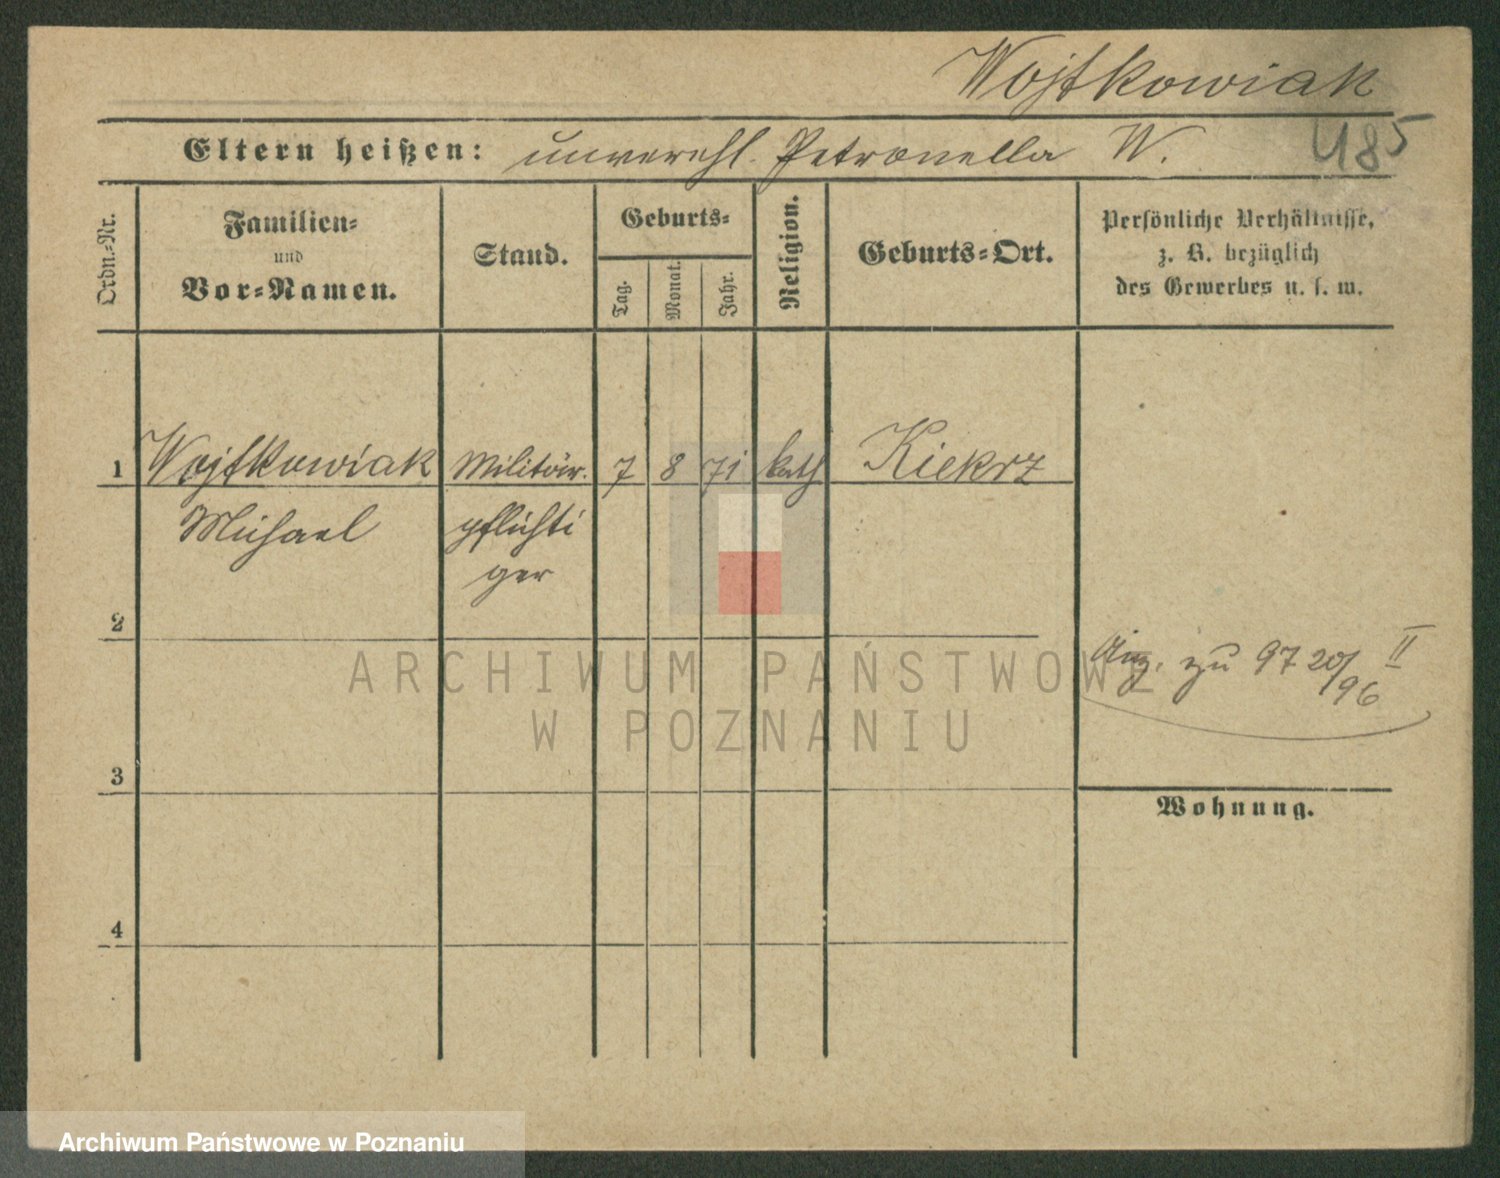 Wojtkowiak
485
Eltern heißen: unverehl. Petronella W.
Ordn.-Nr.
Familien-
und
Vor-Namen.
Stand.
Geburts-
Tag.
Monat.
Jahr.
Religion.
Geburts-Ort.
Persönliche Verhältnisse,
z. B. bezüglich
des Gewerbes u. s. w.
1 Wojtkowiak Militär- 7 8 71 kath Kiekrz
Michael pflichti
ger
2
zu 97 20/96 II
3
Wohnung.
4
ARCHIWUM PAŃSTWOWE
W POZNANIU
Archiwum Państwowe w Poznaniu